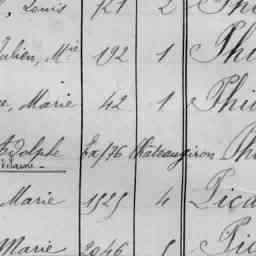 , Louis 121 2 Phi
Julien, Mie 192 1 Phi
e, Marie 42 1 Phi
Adolphe Ex/76 Châteaugiron Ph
Vilaine
Marie 1525 4 Pica
Marie 2046 5 Pic